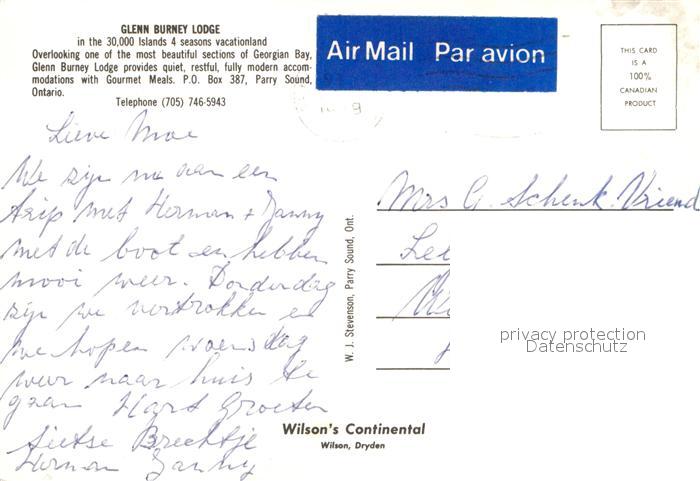 GLENN BURNEY LODGE
in the 30,000 Islands 4 seasons vacationland
Overlooking one of the most beautiful sections of Georgian Bay,
Glenn Burney Lodge provides quiet, restful, fully modern accom-
modations with Gourmet Meals. P.O. Box 387, Parry Sound,
Ontario.
Telephone (705) 746-5943
Air Mail Par avion
THIS CARD
IS A
100%
CANADIAN
PRODUCT
Lieve Moe
We zijn nu aan een
trip met Herman + Danny
met de boot en hebben
mooi weer. Donderdag
zijn we vertrokken en
we hopen woensdag
weer naar huis te
gaan Hart Groeten
Sietse Brechtje
Herman Danny
W. J. Stevenson, Parry Sound, Ont.
Mrs G. Schenk. Vriend
privacy protection
Datenschutz
Wilson's Continental
Wilson, Dryden